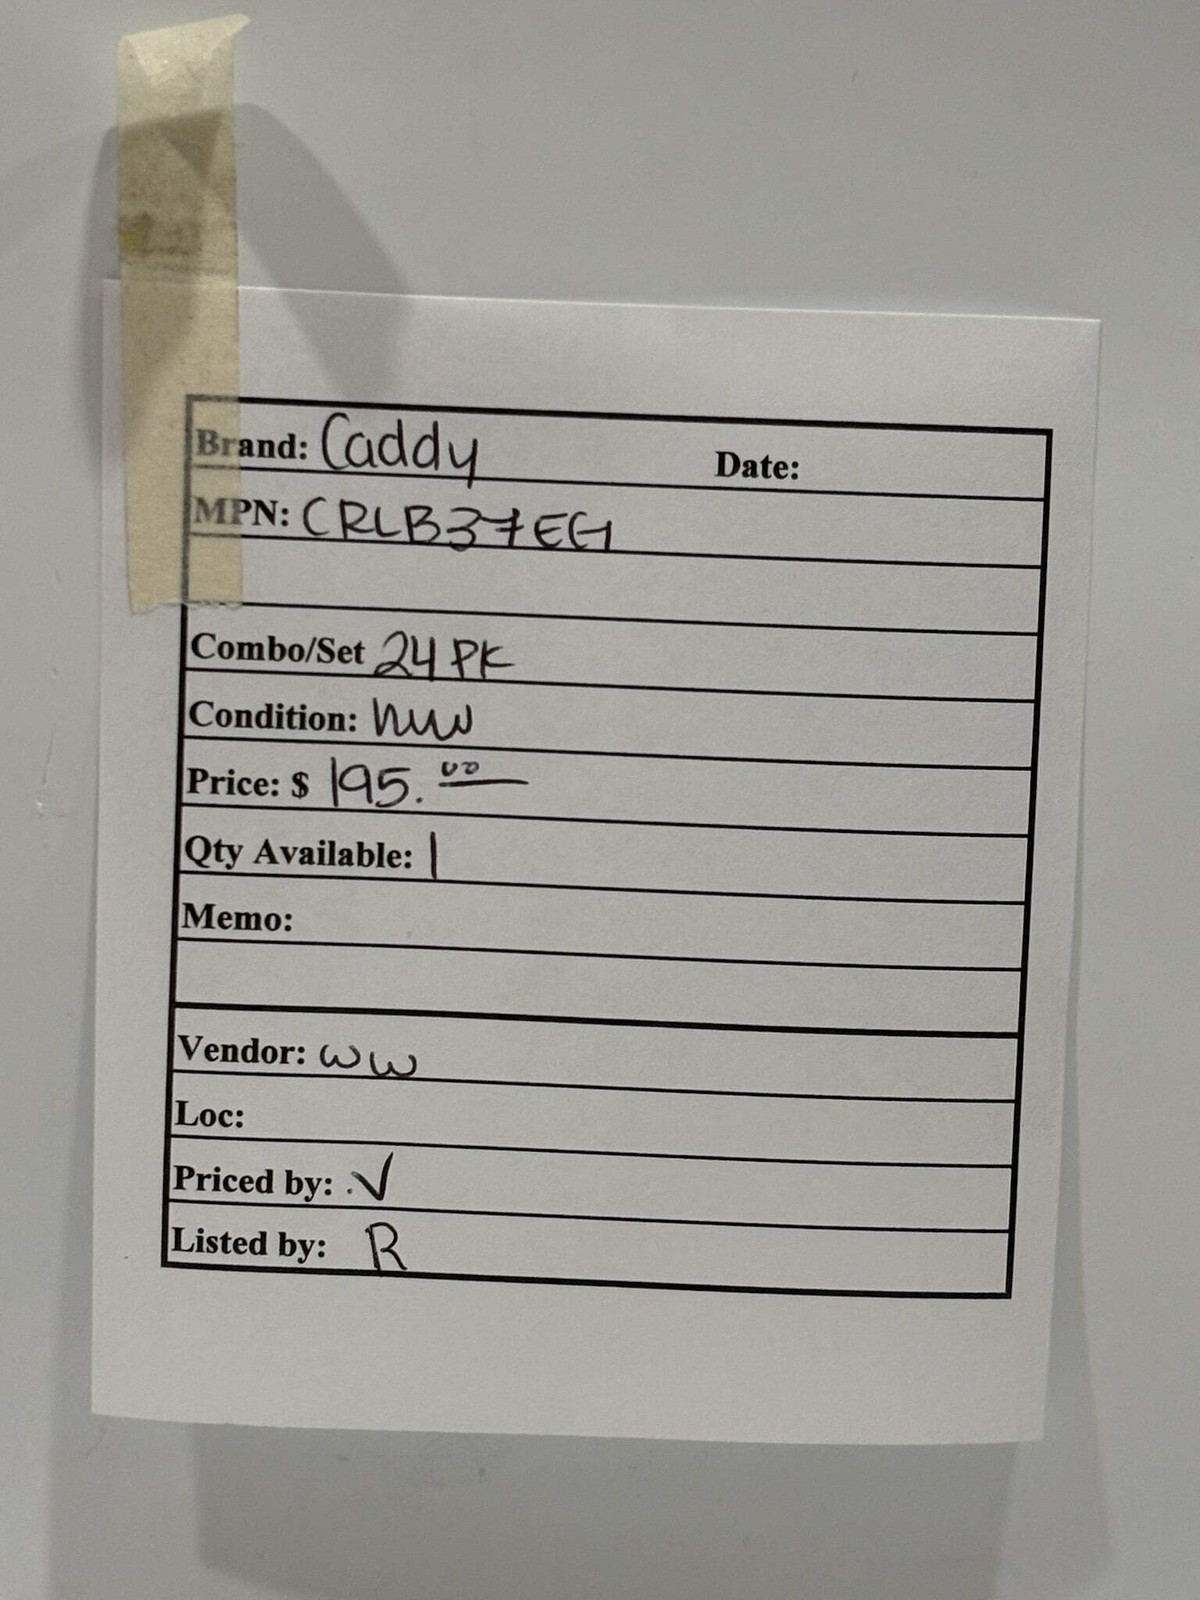 Brand: Caddy Date:
MPN: CRLB37EG
Combo/Set 24 PK
Condition: new
Price: $ 195.00
Qty Available: 1
Memo:
Vendor: WW
Loc:
Priced by: .V
Listed by: R